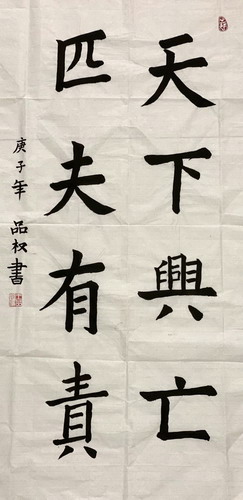 天下興亡
匹夫有責
庚子年 品权書